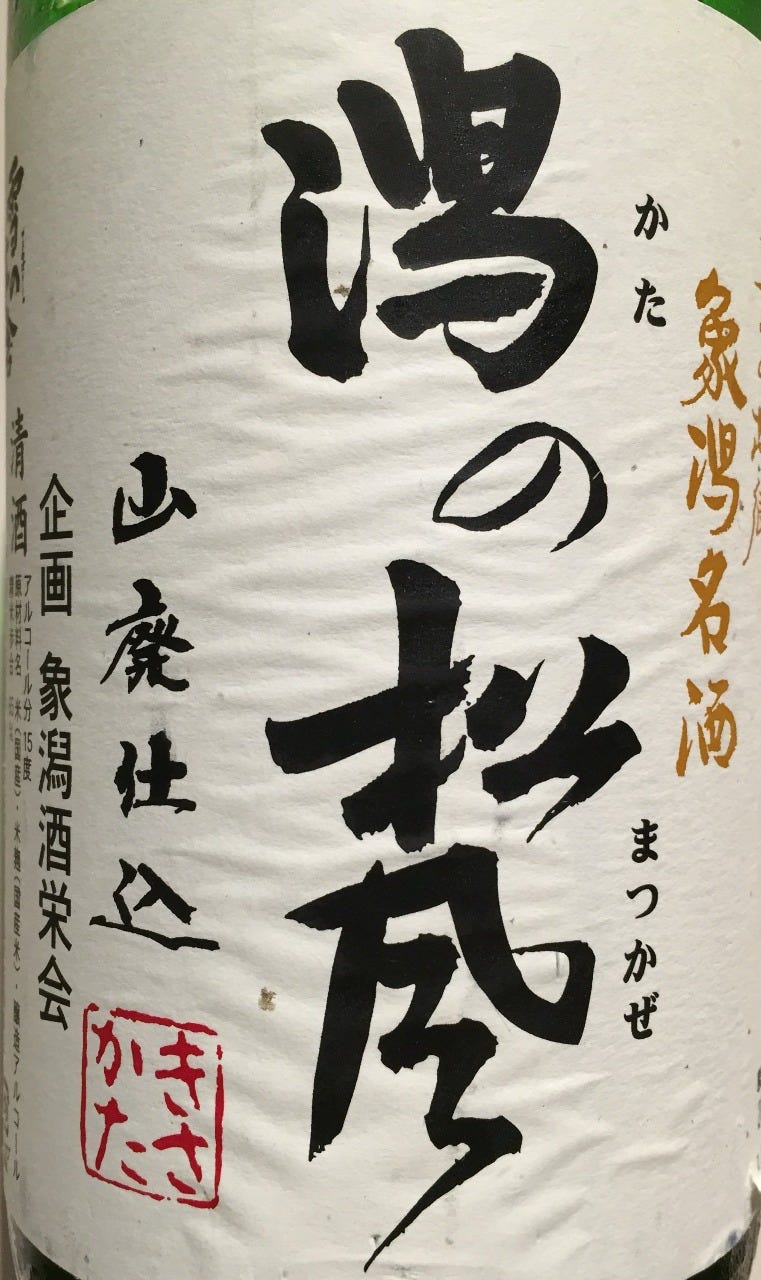 象潟名酒
かた
まつかぜ
潟の松風
山廃仕込
きさ
かた
企画 象潟酒栄会
清酒
アルコール分 15度
原材料名 米(国産)・米麹(国産米)・醸造アルコール